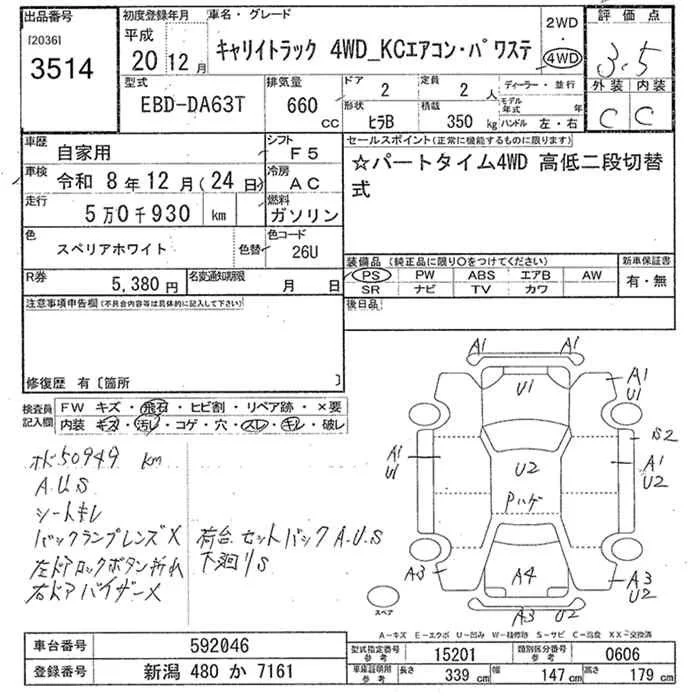 出品番号
[2036]
3514
初度登録年月
平成
20 12 月
車名・グレード
キャリイトラック 4WD_KCエアコン・パワステ
2WD
・
4WD
評価点
3.5
外装 内装
C C
型式
EBD-DA63T
排気量
660 cc
ドア
2
定員
2 人
形状
ヒラB
積載
350 kg
ディーラー・並行
モデル年式 年
ハンドル 左・右
車歴
自家用
シフト
F5
車検
令和 8年 12 月(24 日)
冷房
AC
走行
5万0千930 km
燃料
ガソリン
色
スペリアホワイト
色替
色コード
26U
R券
5,380 円
名変通知期限
月 日
セールスポイント(正常に機能するものに限ります)
☆パートタイム4WD 高低二段切替
式
装備品(純正品に限り〇をつけてください)
PS PW ABS エアB AW
SR ナビ TV カワ
新車保証書
有・無
後日品
注意事項申告欄(不具合内容等は具体的に記入して下さい)
修復歴 有〔箇所 〕
検査員記入欄
FW キズ・飛石・ヒビ割・リペア跡・×要
内装 キズ・汚レ・コゲ・穴・スレ・キレ・破レ
オド50949 km
A.U.S
シートキレ
バックランプレンズX
左ドアロックボタン折れ
右ドアバイザーX
荷台セットバックA.U.S
下廻りS
A1 A1
U1
A1
U1
S2
A1
U1
U2
Pハゲ
A1
U2
A3
A4
A3
U2
A3 U2
スペア
A-キズ E-エクボ U-凹み W-補修跡 S-サビ C-腐食 XX-交換済
車台番号
592046
登録番号
新潟 480 か 7161
型式指定番号
参考
15201
類別区分番号
参考
0606
車庫証明用
参考
長さ
339 cm
幅
147 cm
高さ
179 cm